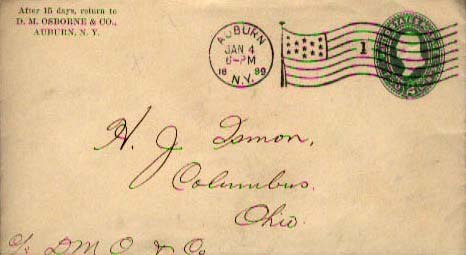 After 15 days, return to
D. M. OSBORNE & CO.,
AUBURN, N. Y.
AUBURN
JAN 4
6-PM
18 99
N.Y.
1
H. J. Ismon,
Columbus.
Ohio.
c/o D M O & Co